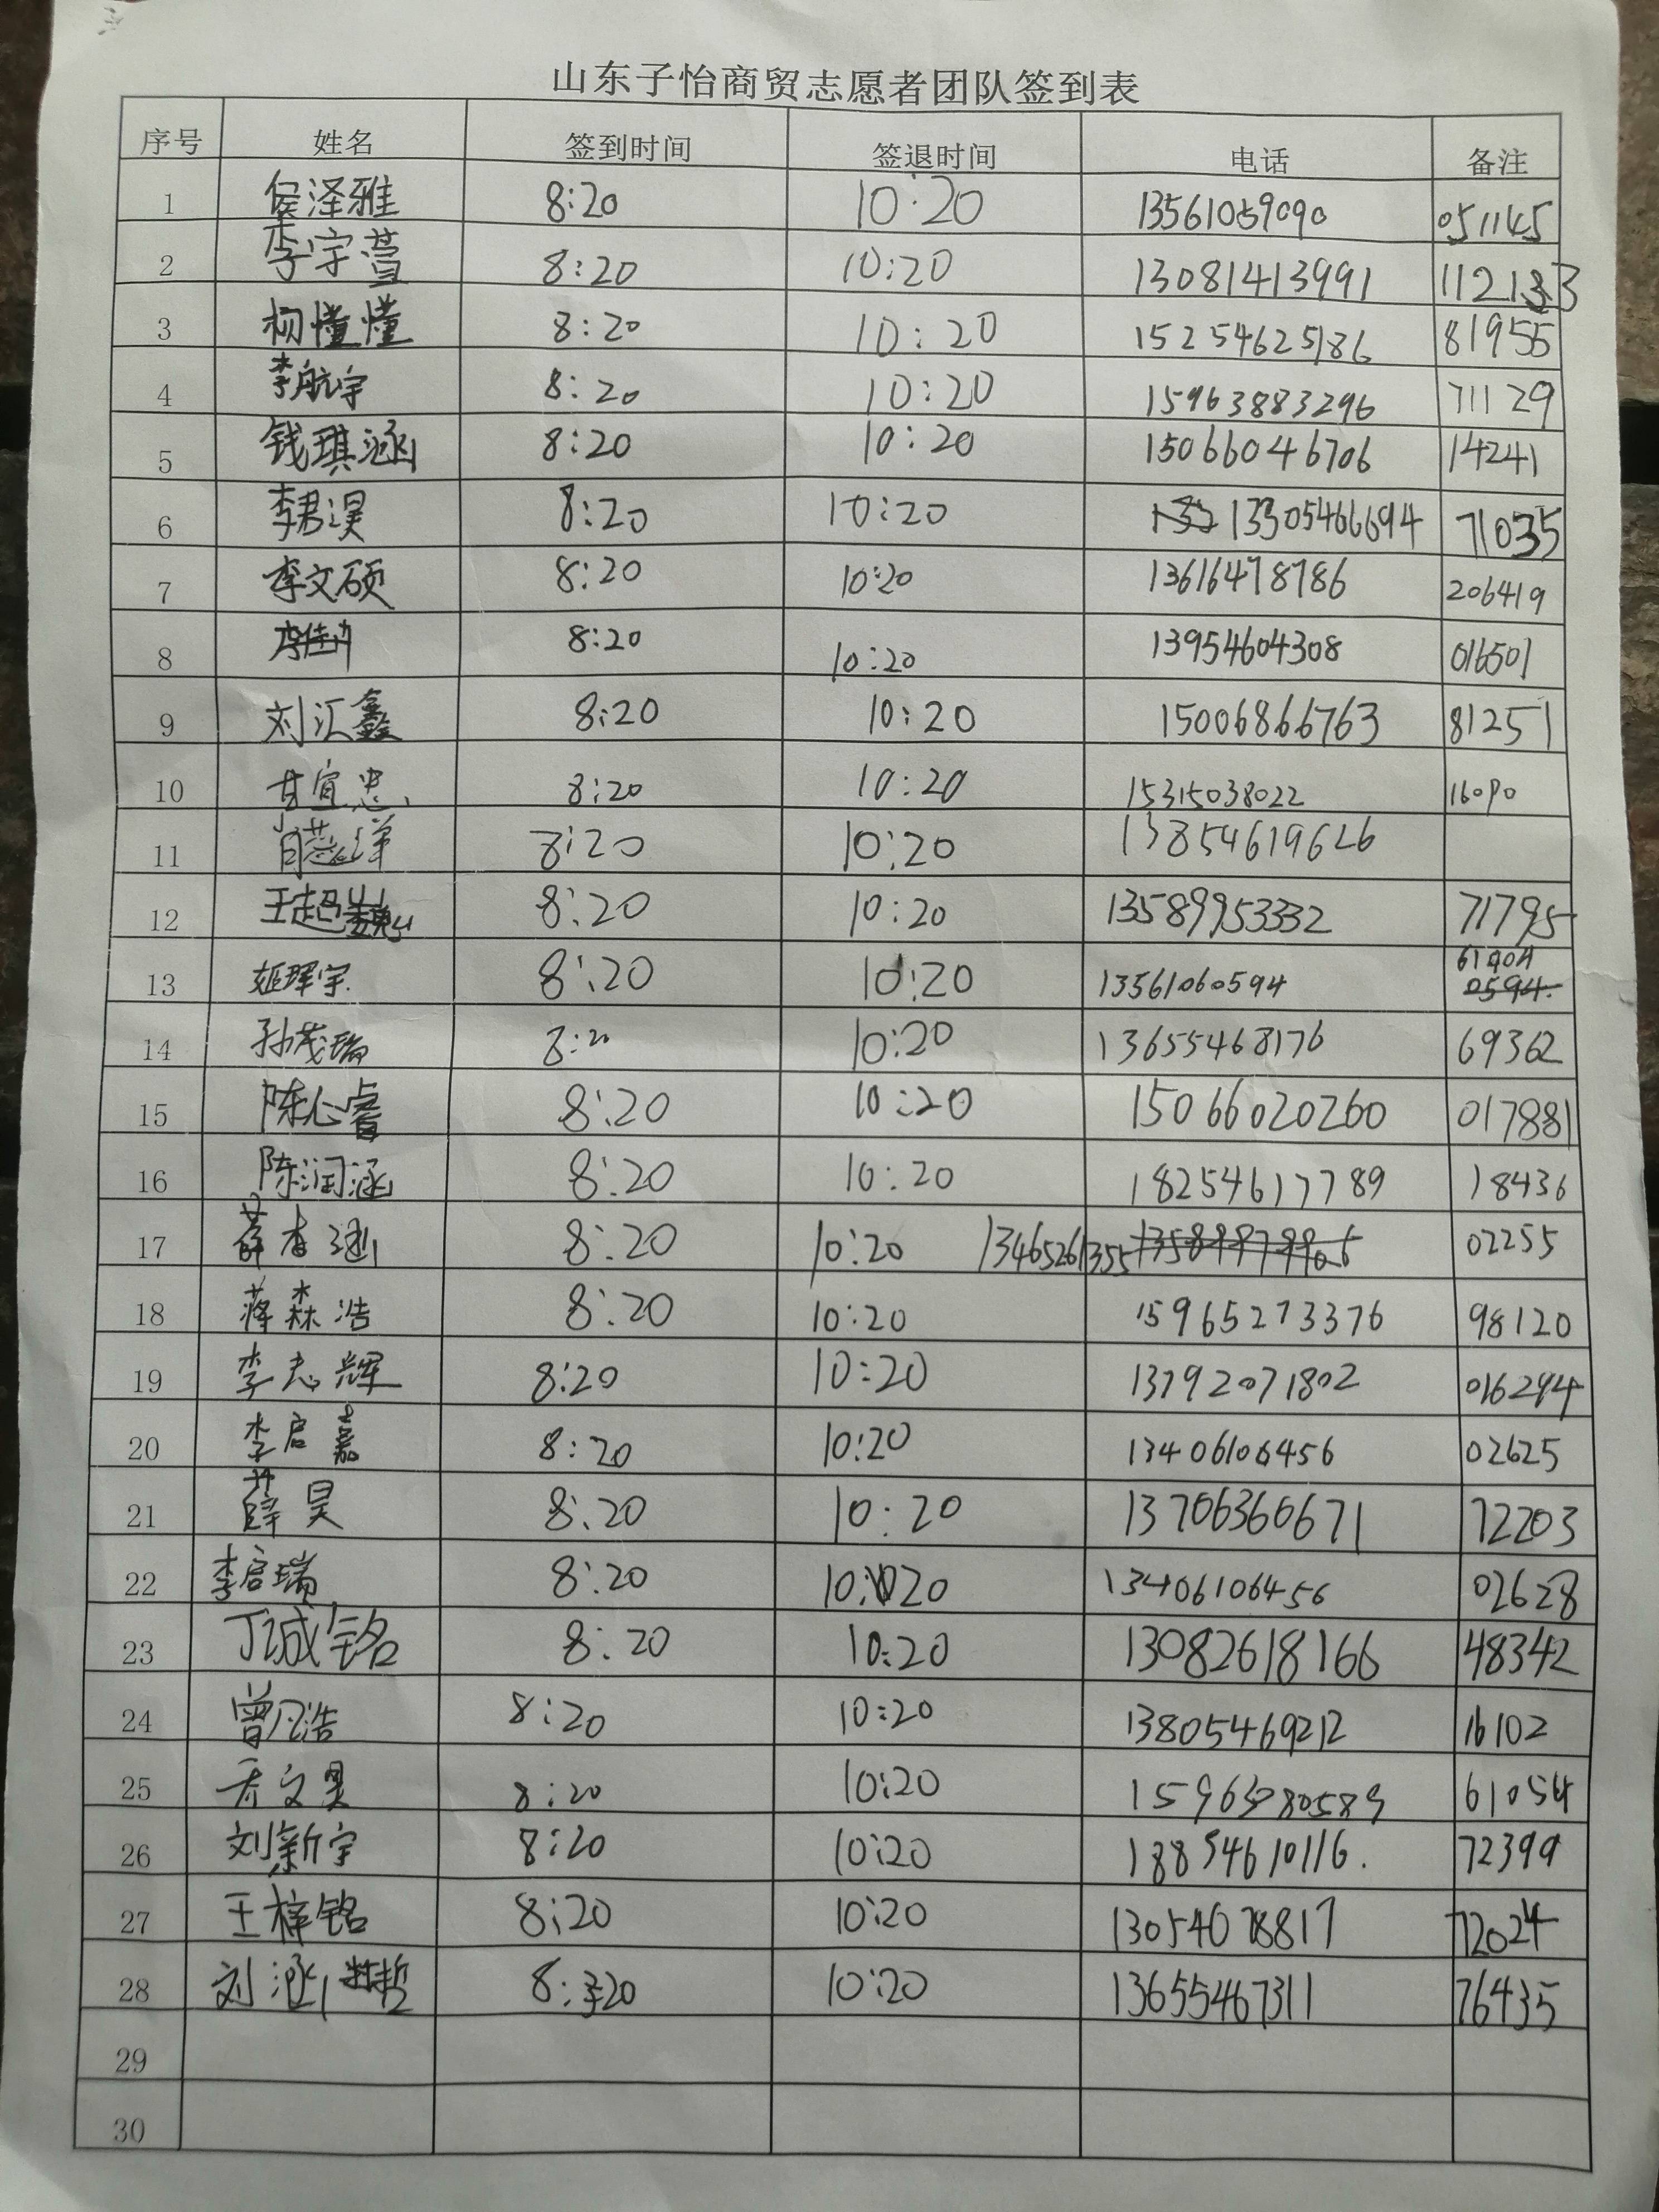 山东子怡商贸志愿者团队签到表
序号 姓名 签到时间 签退时间 电话 备注
1 侯泽雅 8:20 10:20 13561059090 051145
2 李宇萱 8:20 10:20 13081413991
3 杨懂懂 8:20 10:20 15254625186 81955
4 李航宇 8:20 10:20 15963883296 71129
5 钱琪涵 8:20 10:20 15066046706 14241
6 李君淏 8:20 10:20 13305466694 71035
7 李文硕 8:20 10:20 13616478786 206419
8 8:20 10:20 13954604308 016501
9 刘汇鑫 8:20 10:20 15006866763 81251
10 甘宜忠 8:20 10:20 15315038022 16090
11 8:20 10:20 13854619626
12 王超巍 8:20 10:20 13589953332 71795
13 姬珲宇 8:20 10:20 13561060594
14 孙茂瑞 8:20 10:20 13655468176 69362
15 陈心睿 8:20 10:20 15066020260 017881
16 陈润涵 8:20 10:20 18254617789 18436
17 薛杏涵 8:20 10:20 13465261355 02255
18 蒋森浩 8:20 10:20 15965273376 98120
19 李志辉 8:20 10:20 13792071802 016294
20 李启嘉 8:20 10:20 13406106456 02625
21 薛昊 8:20 10:20 13706360671 72203
22 李启瑞 8:20 10:20 13406106456 02628
23 丁诚铭 8:20 10:20 13082618166 48342
24 曾凡浩 8:20 10:20 13805469212 16102
25 8:20 10:20 61054
26 刘新宇 8:20 10:20 18854610116. 72399
27 王梓铭 8:20 10:20 13054678817 72024
28 刘涵哲 8:20 10:20 13655467311 76435
29
30